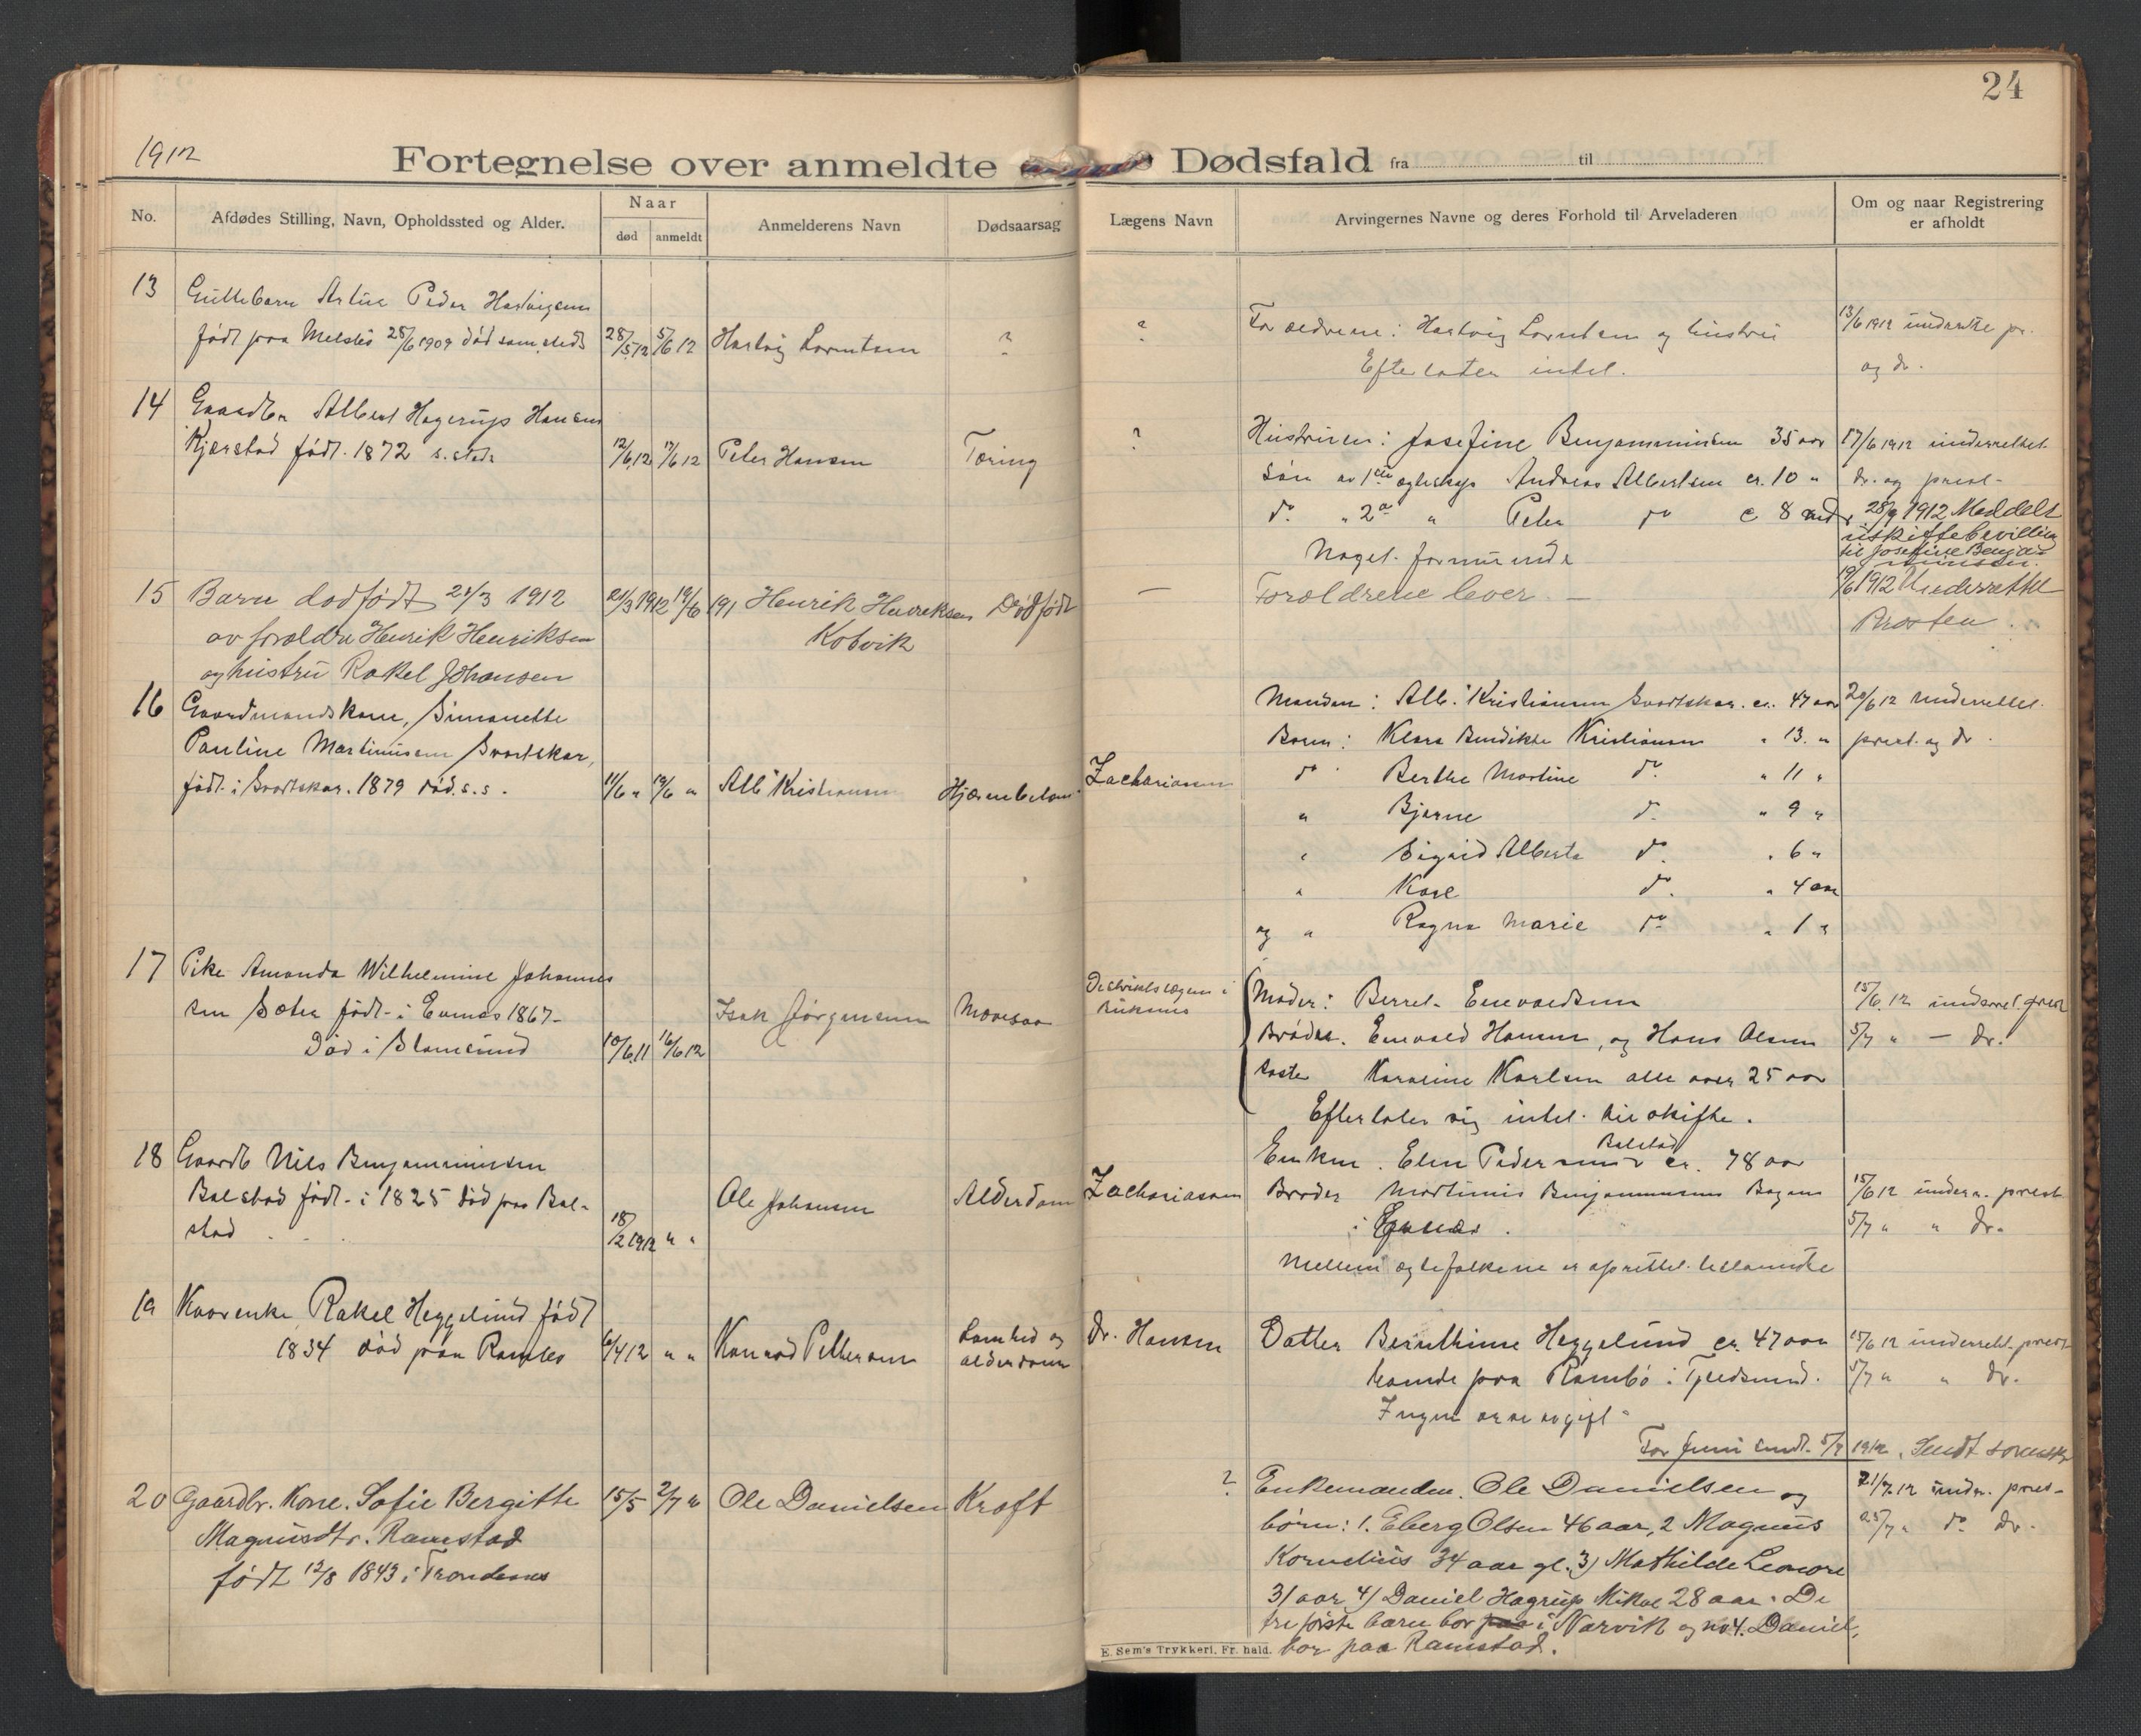 24
1912
Fortegnelse over anmeldte Dødsfald fra til
No.
Afdødes Stilling, Navn, Opholdssted og Alder.
Naar
død
anmeldt
Anmelderens Navn
Dødsaarsag
Lægens Navn
Arvingernes Navne og deres Forhold til Arveladeren
Om og naar Registrering
er afholdt
13
Guttebarn Peder Hartvigsen
født paa 25/6 1909 død sammesteds
28/5 12
5/6 12
Hartvig Lorntsen
?
?
Forældrene: Hartvig Lorntsen og hustru
Efterlater intet.
13/6 1912 underrettet pr.
og dr.
14
Gaardbr Albert Hagerup Hansen
Kjerstad født 1872 s. steds
12/6 12
17/6 12
Peter Hansen
Tæring
?
Hustruen: Josefine Benjaminsen 35 aar
Søn av 1ste egteskap Andreas Albertsen ca. 10 "
do. " 2det " Peter do c 8 mdr
Noget formuende
17/6 1912 underrettet
dr. og prest
28/9 1912 Meddelt
uskiftebevilling
til Josefine Benja-
minsen.
15
Barn dødfødt 21/3 1912
av forældre Henrik Henriksen
og hustru Rakel Johansen
21/3 1912
19/6 191
Henrik Henriksen
Kobvik
Dødfødt
—
Forældrene lever. —
19/6 1912 Underrettet
Prosten.
16
Gaardmandskone, Simonette
Pauline Martinusen Svartskar,
født i Svartskar. 1879 død. s. s.
11/6 "
19/6 "
Alb. Kristiansen
Zachariassen
Manden: Alb. Kristiansen Svartskar. ca. 47 aar
Barn: Klara Bendikte Kristiansen " 13 "
do Berthe Martine do. " 11 "
" Bjarne do. " 9 "
" Sigrid Alberte do. " 6 "
" Kaare do. " 4 aar
og " Ragna Marie do " 1 "
20/6 12 Underrettet
prest. og dr.
17
Pike Amanda Wilhelmine Johannes
sen Sæter født i Evenes 1867
Død i Blomsund
10/6 11
16/6 12
Isak Jørgensen
Mavesaar
Distriktslægen i
Buksnes
Moder: Berret Enevoldsen
Brødre. Enevold Hansen, og Hans Olsen
Søster Karoline Karlsen alle over 25 aar
Efterlater sig intet til skifte.
15/6 12 underret. prest
5/7 " — dr.
18
Gaardb Nils Benjaminsen
Balstad født i 1825 død paa Bal-
stad
18/2 1912 " "
Ole Johansen
Alderdom
Zachariassen
Enken. Elen Pedersen Balstad ca. 78 aar
Broder Martinus Benjaminsen Bogen
i Evenes.
Mellem egtefolkene er oprettet testamente
15/6 12 underr. prest
5/7 " " dr.
19
Kaarenke, Rakel Heggelund født
1834 død paa Rambø
6/4 12 " "
Konrad Pettersen
Lamhed og
alderdom
Dr. Hansen
Datter Bernthine Heggelund ca. 47 aar
hamde paa Rambø i Tjeldsund.
Ingen arveavgift
15/6 12 underrett. prest
5/7 " " dr.
For Juni sendt 5/7 1912. Sendt sorensk
20
Gaardbr. Kone. Sofie Bergitte
Magnusdtr. Ramstad
født 12/8 1843 i Trondenes
15/5
2/7 "
Ole Danielsen
Kræft
?
Enkemanden. Ole Danielsen og
børn: 1. Eberg Olsen 46 aar, 2 Magnus
Kornelius 34 aar gl. 3) Mathilde Leonore
31 aar 4) Daniel Hagrup Mikal 28 aar. De
tre første barn bor paa i Narvik og no 4. Daniel,
bor paa Ramstad.
21/7 12 underr. prest
25/7 " do dr.
E. Sem's Trykkeri, Fr. hald.